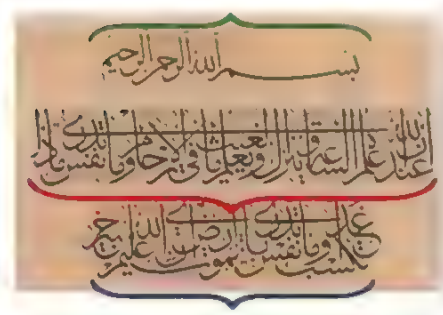 بسم الله الرحمن الرحيم
ان الله عنده علم الساعة وينزل الغيث ويعلم ما في الارحام وما تدرى نفس ماذا
تكسب غدا وما تدرى نفس باى ارض تموت ان الله عليم خبير